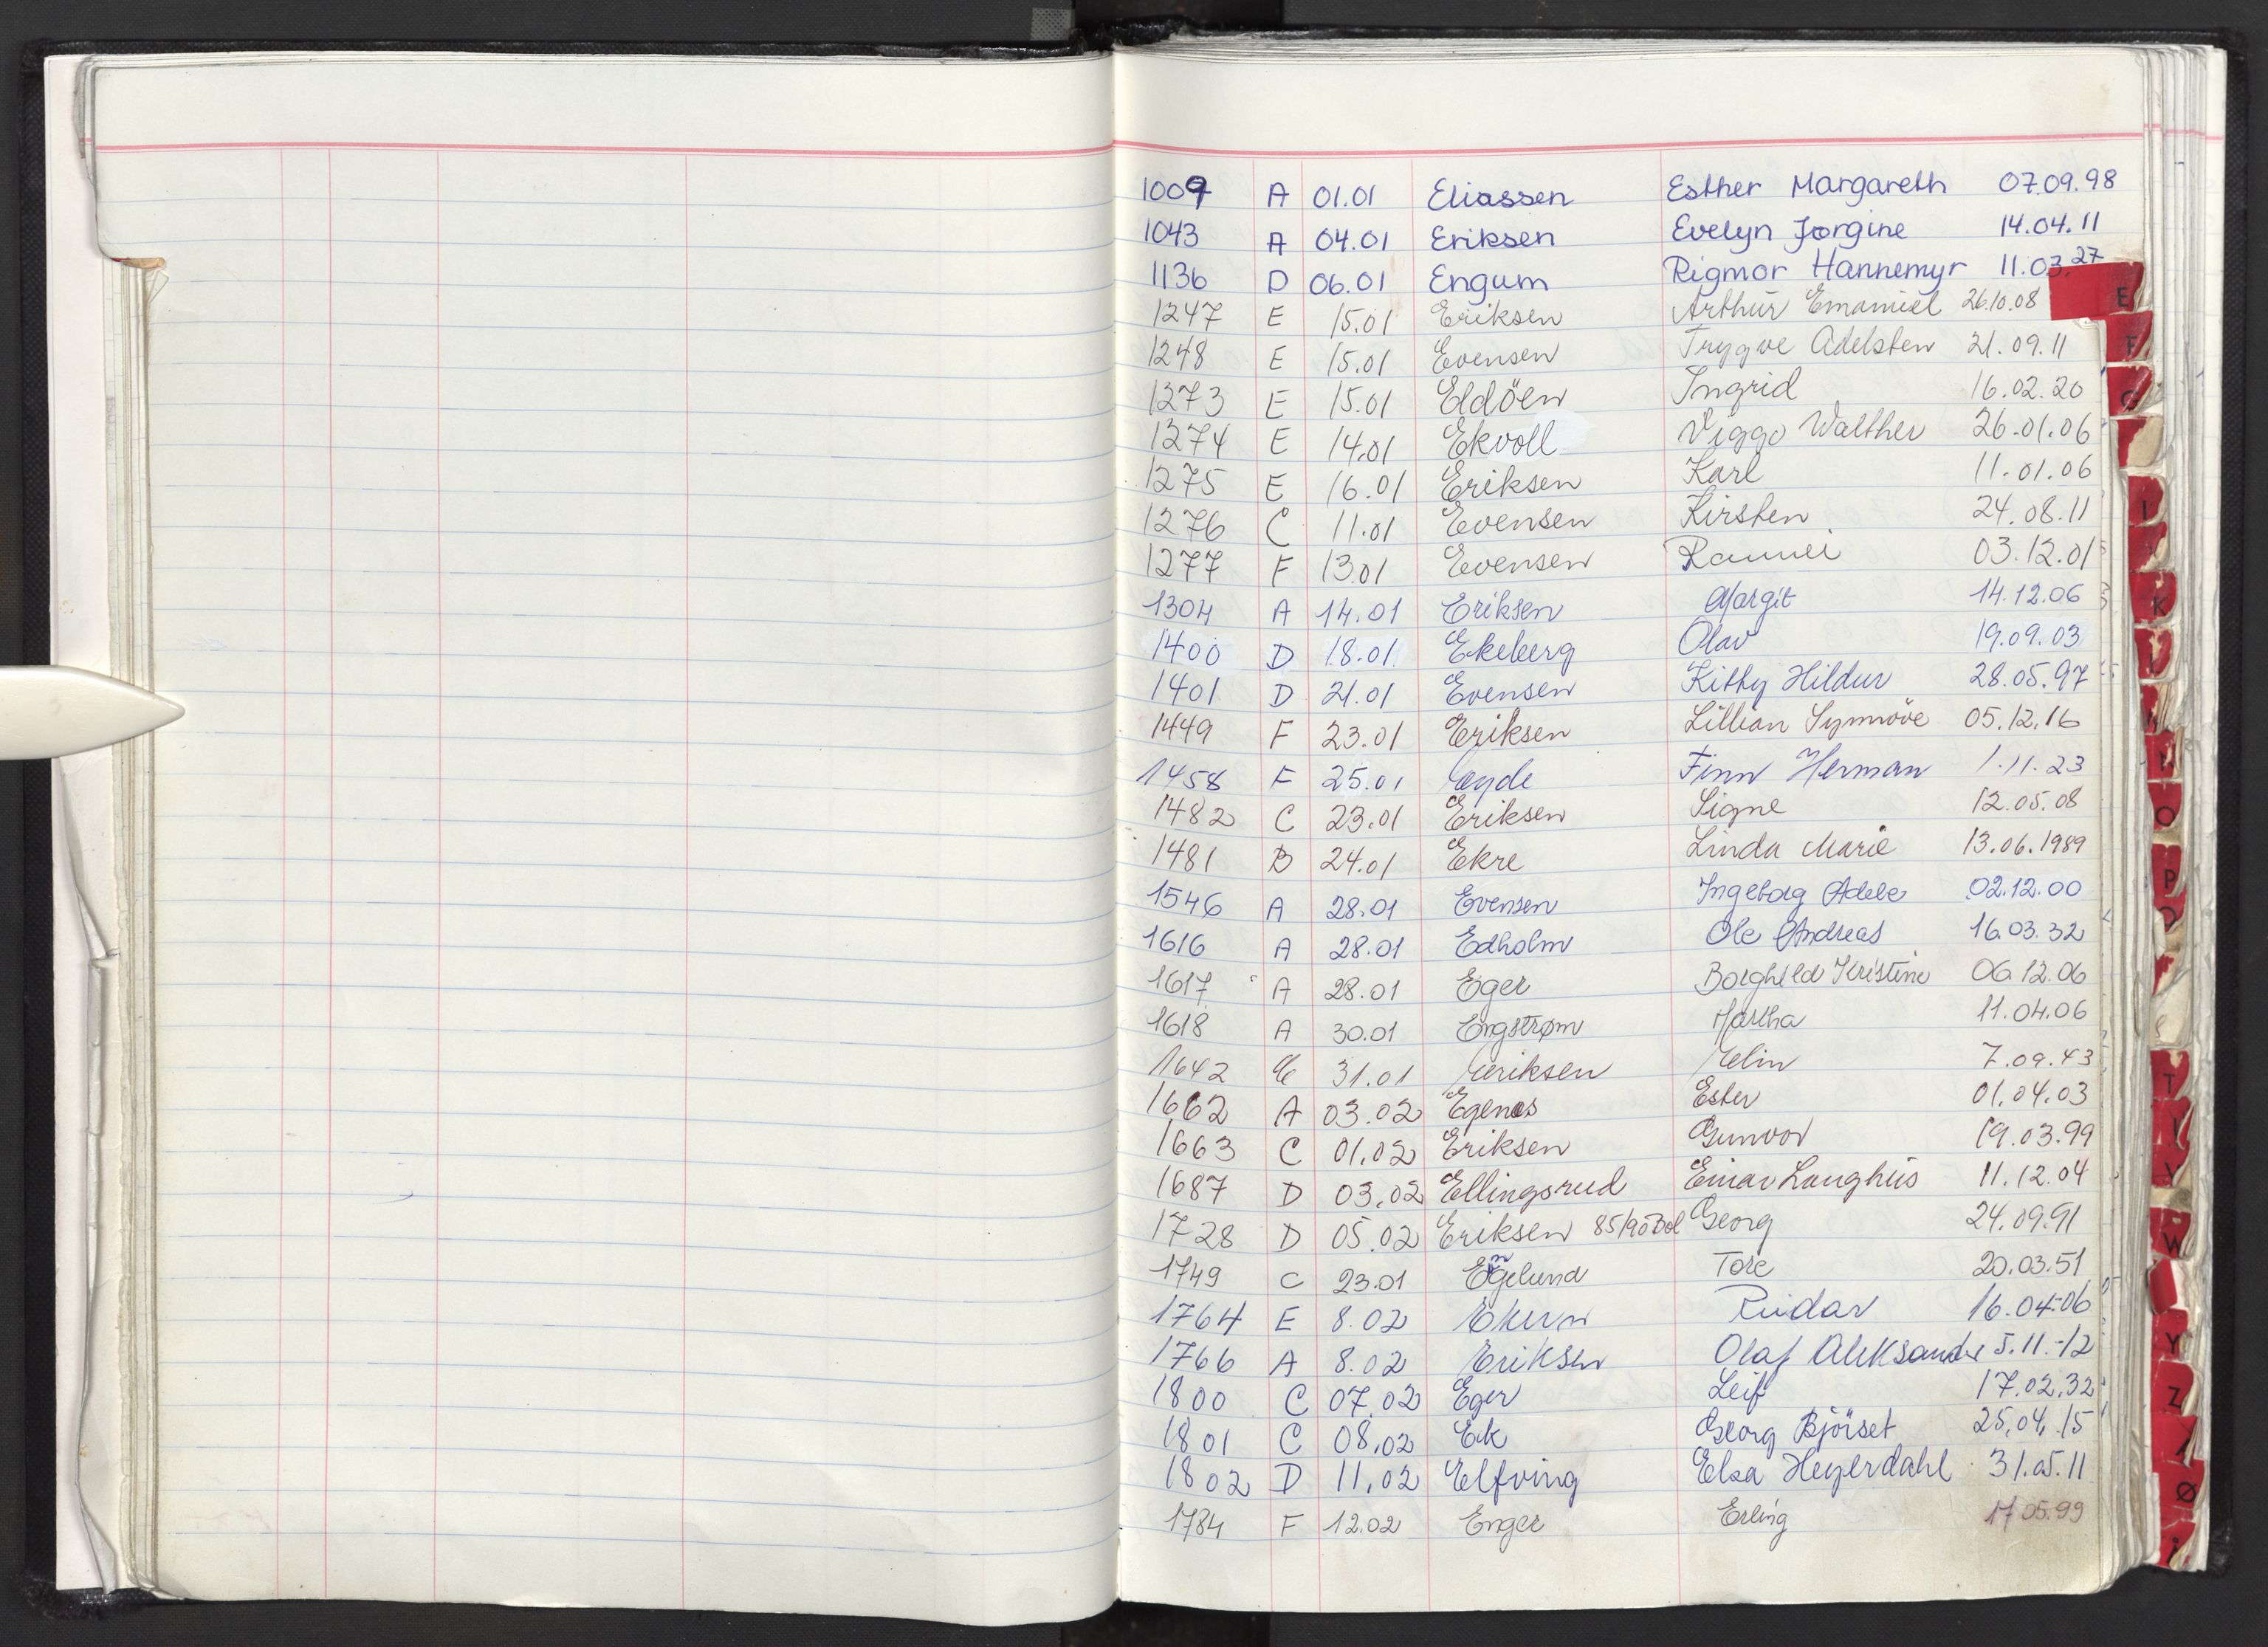 1009 A 01.01 Eliassen Esther Margareth 07.09.98
1043 A 04.01 Eriksen Evelyn Jorgine 14.04.11
1136 D 06.01 Engum Rigmor Hannemyr 11.03.27
1247 E 15.01 Eriksen Arthur Emanuel 26.10.08
1248 E 15.01 Evensen Trygve Adelsten 21.09.11
1273 E 15.01 Eldöen Ingrid 16.02.20
1274 E 14.01 Ekvoll Viggo Walther 26.01.06
1275 E 16.01 Eriksen Karl 11.01.06
1276 C 11.01 Evensen Kirsten 24.08.11
1277 F 13.01 Evensen 03.12.01
1304 A 14.01 Eriksen Margit 14.12.06
1400 D 18.01 Ekeberg Olav 19.09.03
1401 D 21.01 Evensen Kitty Hildur 28.05.97
1449 F 23.01 Eriksen Lillian Synnöve 05.12.16
1458 F 25.01 Eyde Finn Herman 1.11.23
1482 C 23.01 Eriksen Signe 12.05.08
1481 B 24.01 Ekre Linda Marie 13.06.1989
1546 A 28.01 Evensen Ingeborg Adele 02.12.00
1616 A 28.01 Edholm Ole Andreas 16.03.32
1617 A 28.01 Eger Borghild Kristine 06.12.06
1618 A 30.01 Engstrøm Martha 11.04.06
1642 E 31.01 Eriksen Elin 7.09.43
1662 A 03.02 Egenes Ester 01.04.03
1663 C 01.02 Eriksen Gunvor 19.03.99
1687 D 03.02 Ellingsrud Einar Langhus 11.12.04
1728 D 05.02 Eriksen 85/90 Bol Georg 24.09.91
1749 C 23.01 Engelund Tore 20.03.51
1764 E 8.02 Ekern Reidar 16.04.06
1766 A 8.02 Eriksen Olaf Aleksander 5.11.-12
1800 C 07.02 Eger Leif 17.02.32
1801 C 08.02 Ek Georg Bjôrset 25.04.15
1802 D 11.02 Elfving Elsa Heyerdahl 31.05.11
1784 F 12.02 Enger Erling 17.05.99
E
F
G
I
K
N
O
P
T
V
W
Y
Z
Ø